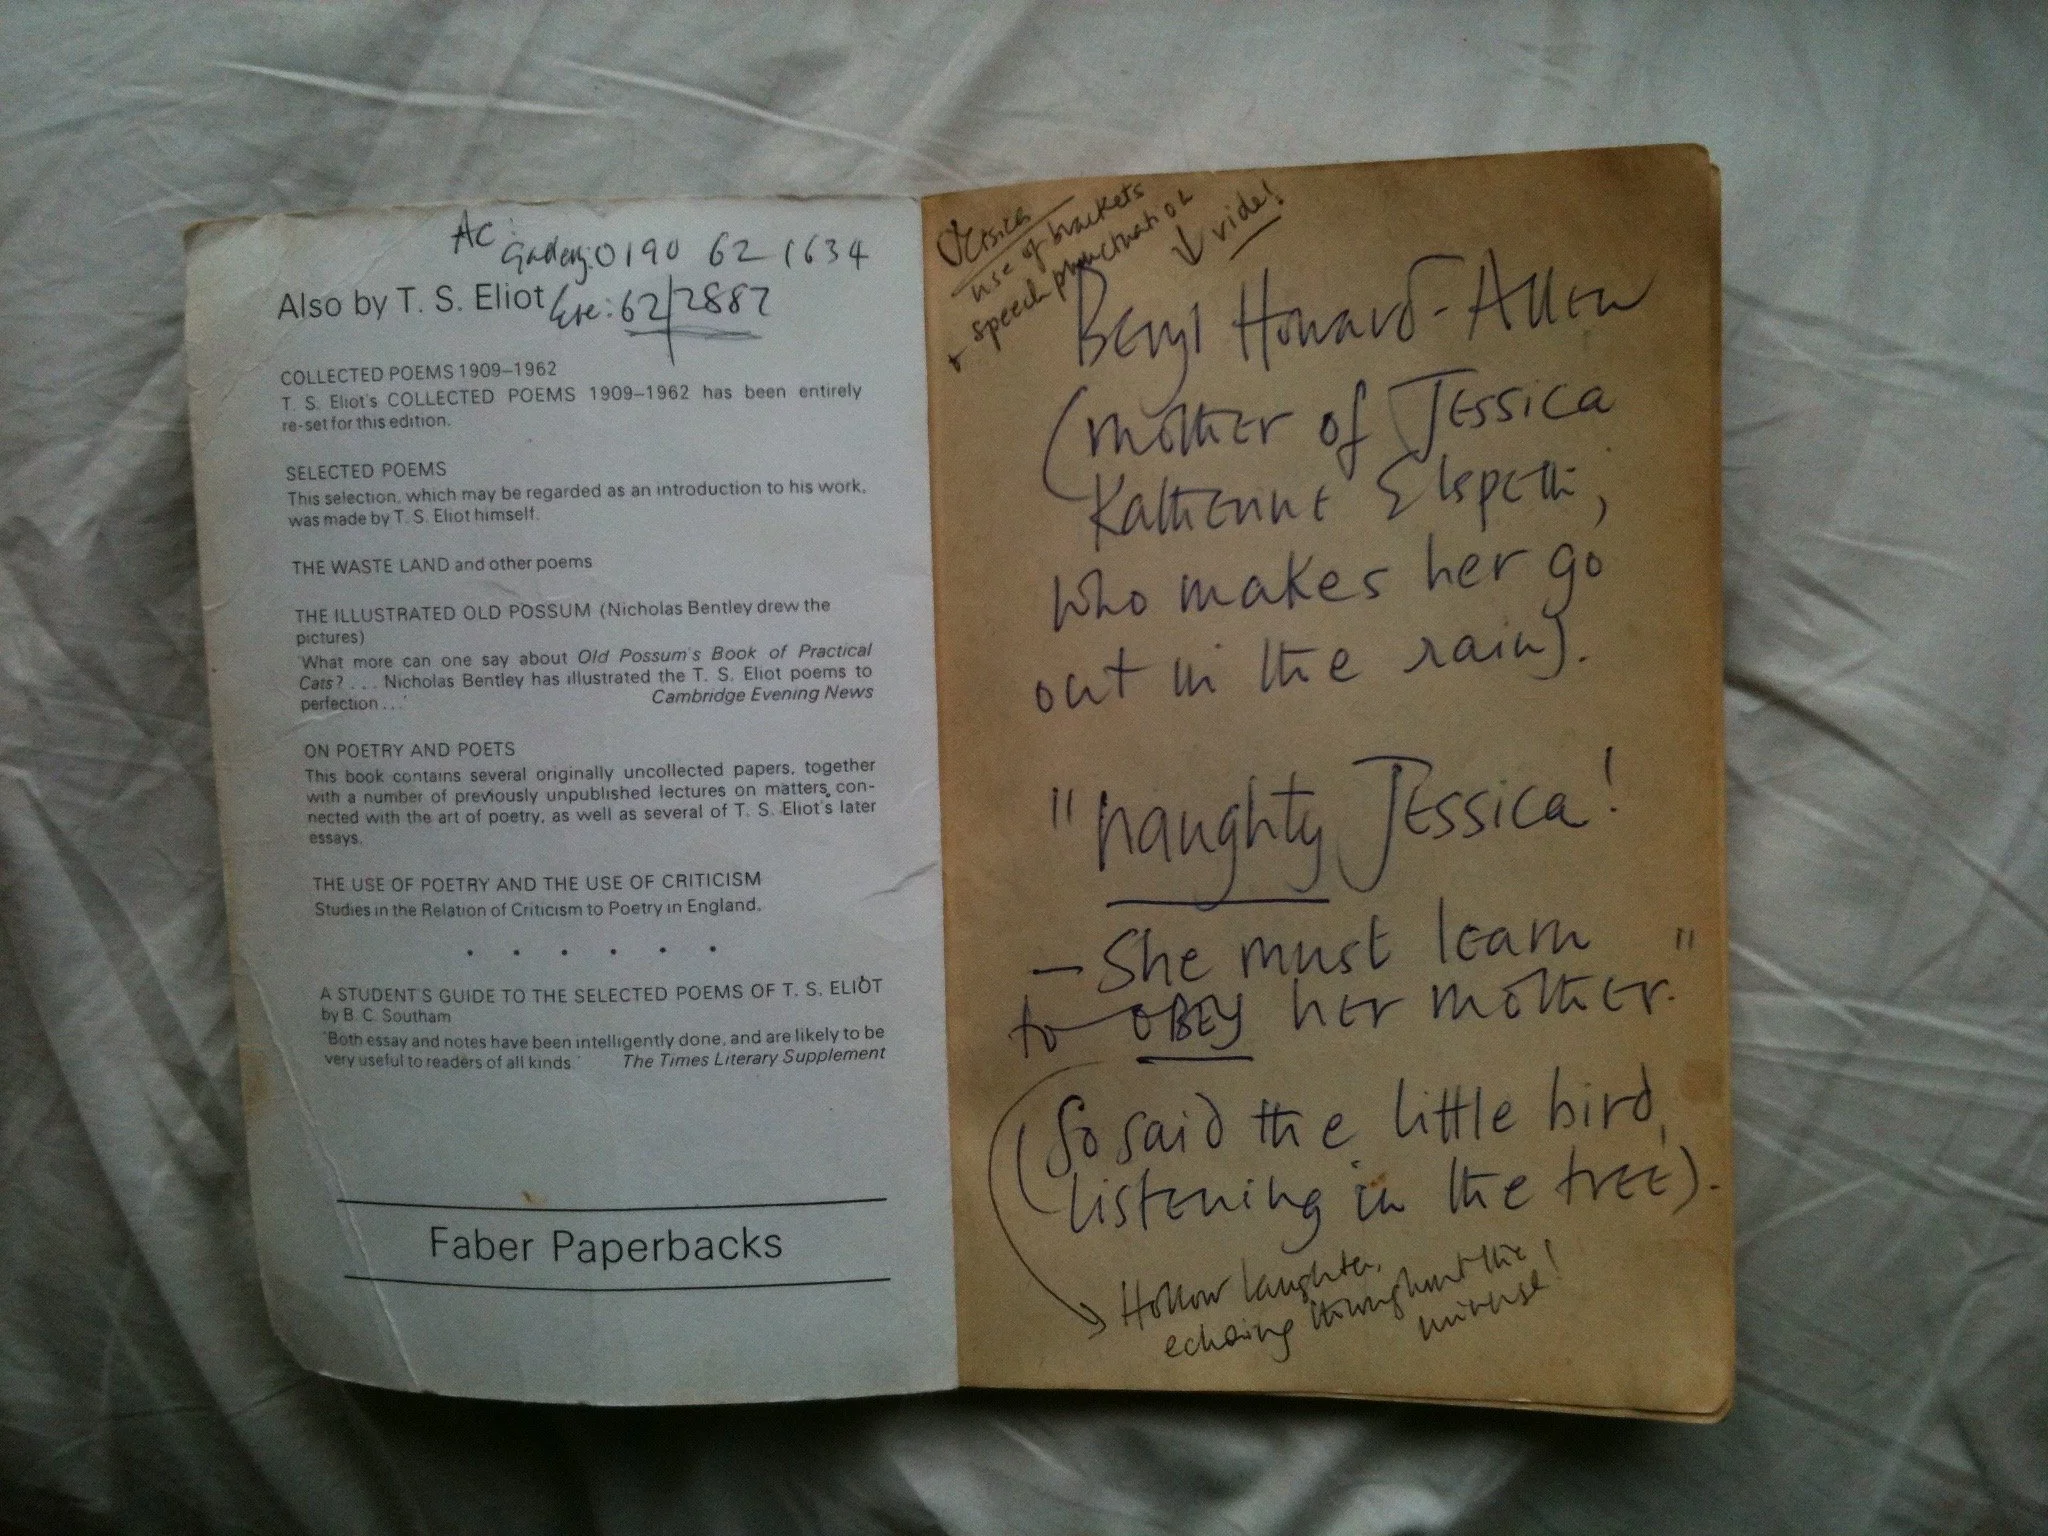 AC
Gallery: 0190 62 1634
Also by T. S. Eliot
Eve: 62/2887
COLLECTED POEMS 1909–1962
T. S. Eliot's COLLECTED POEMS 1909–1962 has been entirely
re-set for this edition.
SELECTED POEMS
This selection, which may be regarded as an introduction to his work,
was made by T. S. Eliot himself.
THE WASTE LAND and other poems
THE ILLUSTRATED OLD POSSUM (Nicholas Bentley drew the
pictures)
'What more can one say about Old Possum's Book of Practical
Cats? . . . Nicholas Bentley has illustrated the T. S. Eliot poems to
perfection . . .' Cambridge Evening News
ON POETRY AND POETS
This book contains several originally uncollected papers, together
with a number of previously unpublished lectures on matters con-
nected with the art of poetry, as well as several of T. S. Eliot's later
essays.
THE USE OF POETRY AND THE USE OF CRITICISM
Studies in the Relation of Criticism to Poetry in England.
. . . . . .
A STUDENT'S GUIDE TO THE SELECTED POEMS OF T. S. ELIOT
by B. C. Southam
'Both essay and notes have been intelligently done, and are likely to be
very useful to readers of all kinds.' The Times Literary Supplement
Faber Paperbacks
Jessica
use of brackets
+ speech punctuation
↓ vide!
Beryl Howard-Allen
(mother of Jessica
Katherine Elspeth,
who makes her go
out in the rain).
"naughty Jessica!
– She must learn
to OBEY her mother."
(So said the little bird,
listening in the tree).
Hollow laughter,
echoing throughout the
universe!